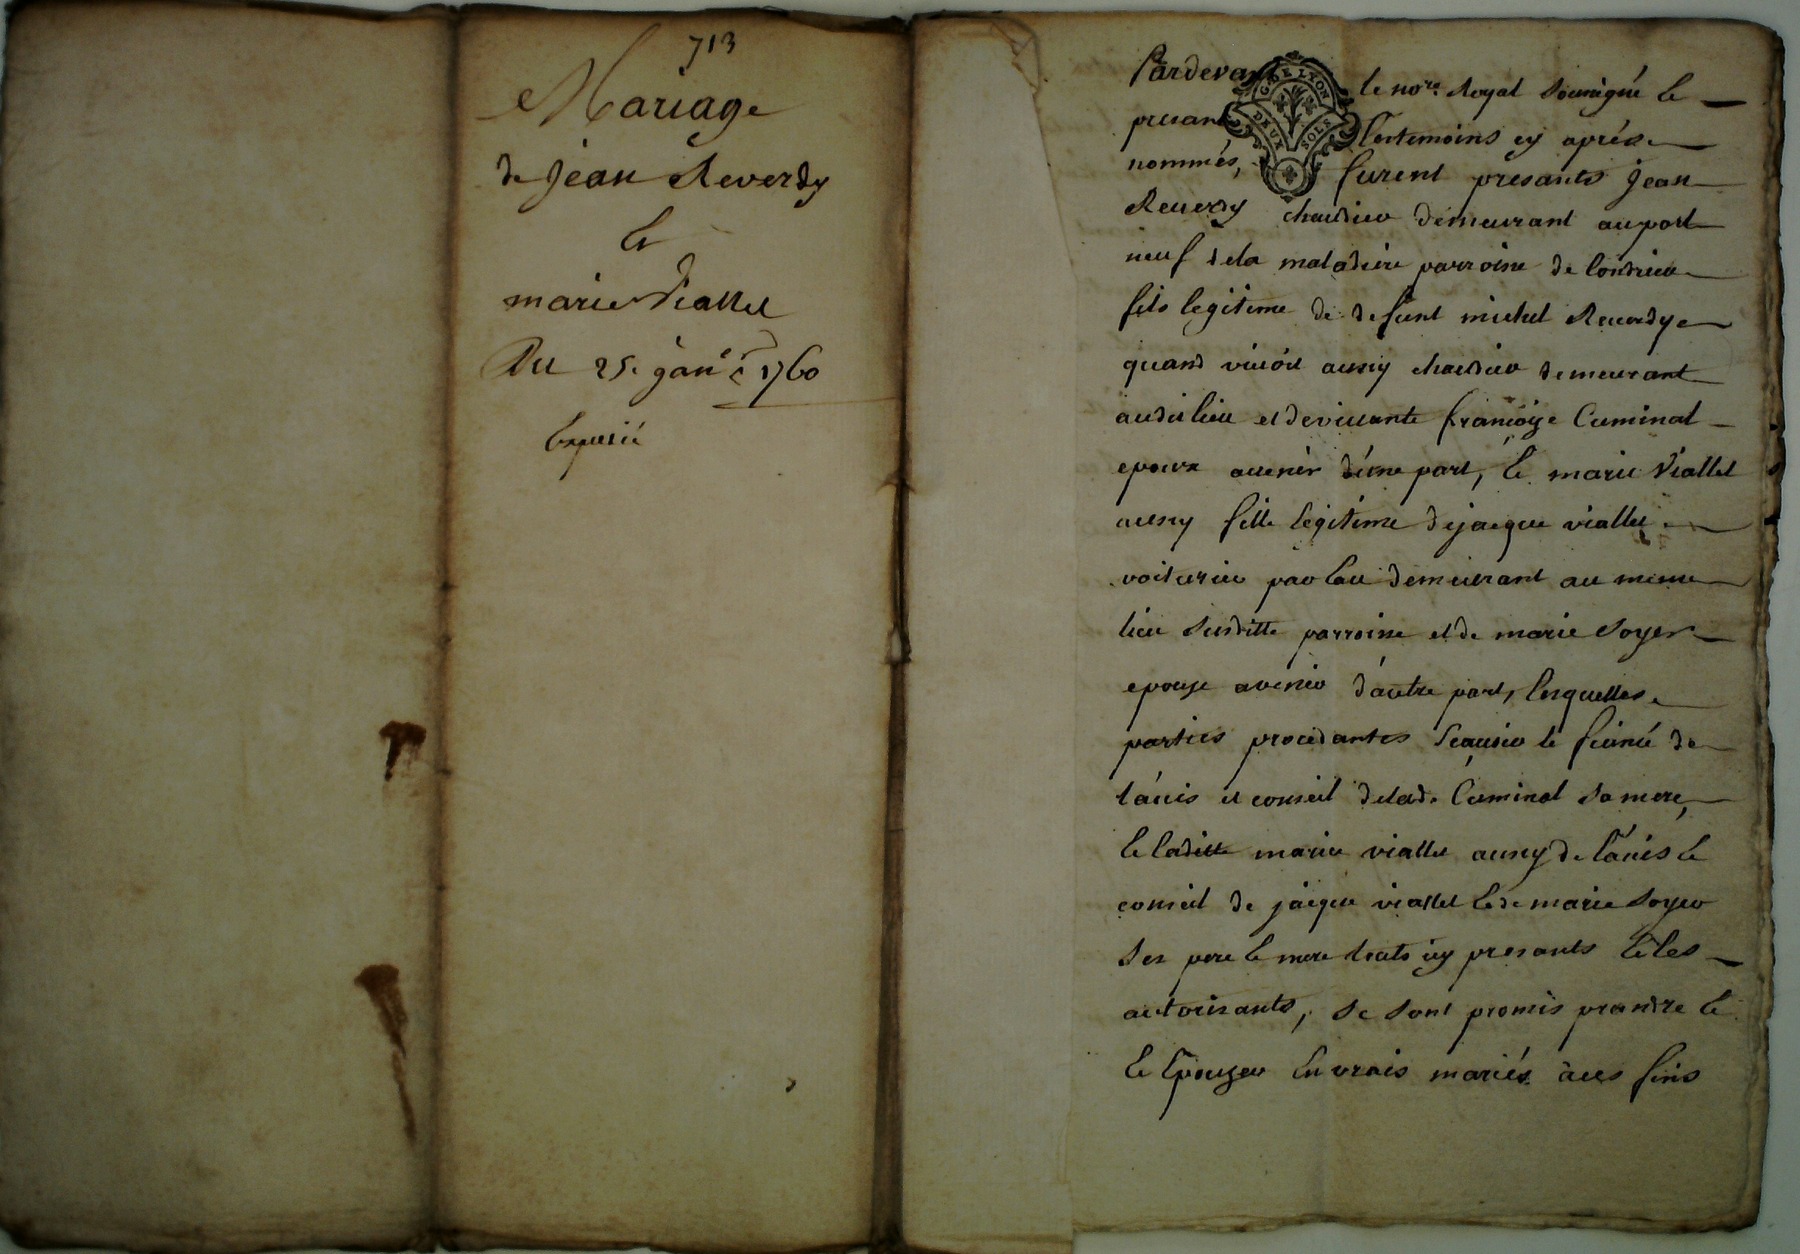 713
Mariage
de jean Reverdy
Et
marie Viallet
Du 25e janer 1760
Expedié
Pardevant le nore Royal Soussigné Et
presant Les temoins cy aprés
nommés, furent presants jean
Reverdy chardier demeurant au port
neuf de la maladiere parroisse de Condrieu
fils legitime de defunt michel Reverdy
quand vivoit aussy chardier demeurant
audit lieu et de vivante françoise Cuminal
epoux avenir d'une part, Et marie Viallet
aussy fille legitime de jacque viallet
voiturier par Eau demeurant au meme
lieu susditte parroisse et de marie Soyer
epouse avenir d'autre part, Lesquelles
parties procedantes Scavoir le futur de
l'avis et conseil de lad. Cuminal sa mere,
Et laditte marie viallet aussy de l'avis Et
conseil de jacque viallet Et de marie Soyer
Ses pere Et mere tous icy presants Et les
autorisants, Se Sont promis prandre Et
Et Epouser En vrais mariés à ces fins
GDE LYON
DEUX SOLS